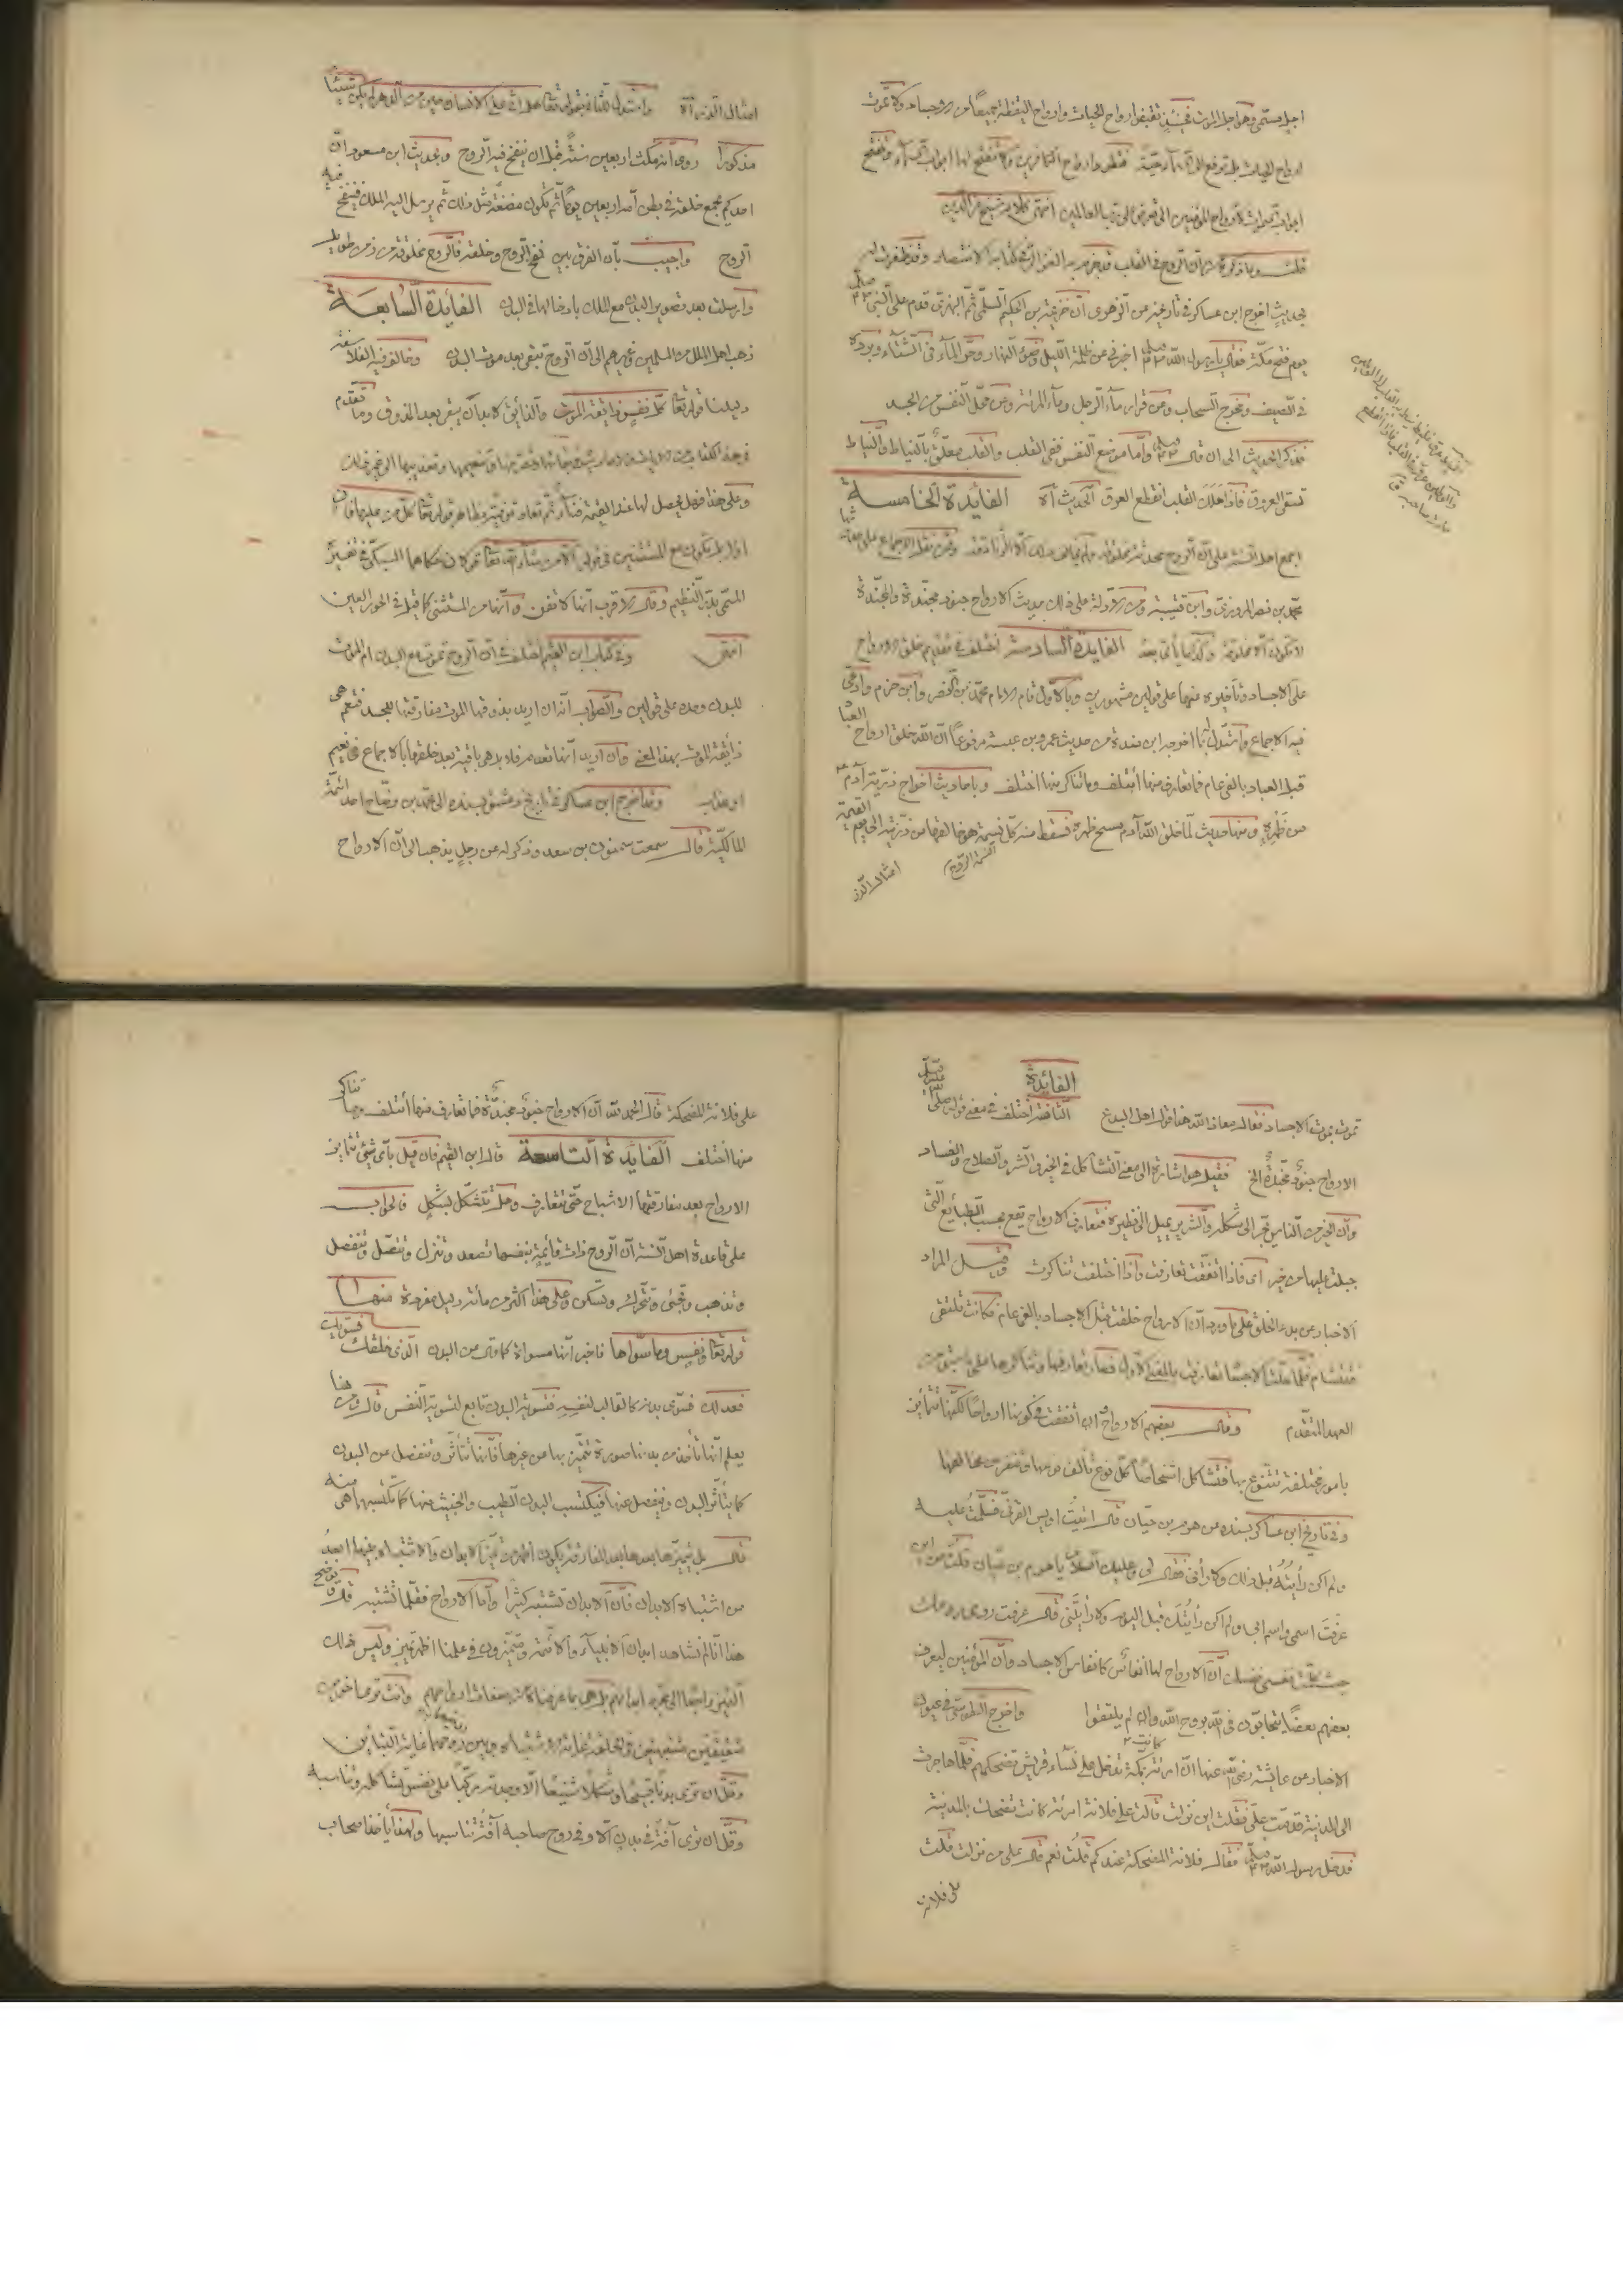 اجل مسمى وهو اجل الموت فحينئذ تقبض ارواح الحيات وارواح اليقظة جميعا من الاجساد ولا تموت
ارواح الحيات بل ترفع الى السماء حية فتطرد ارواح الكافرين ولا تفتح لها ابواب السماء وتفتح
ابواب السموات لارواح المؤمنين الى ان تعرض على رب العالمين انتهى كلام شيخ عز الدين
قلت وما ذكره من ان الروح في القلب قد جزم به الغزالي في كتابه الانتصار وقد ظفرت له
بحديث اخرج ابن عساكر في تاريخه عن الزهرى ان خزيمة بن الحكيم السلمى ثم البهزى قدم على النبى صلعم
يوم فتح مكة فقال يا رسول الله صلعم اخبرني عن ظلمة الليل وضوء النهار وحر الماء في الشتاء وبرده
في الصيف ومخرج السحاب وعن قرار ماء الرجل وماء المرئة وعن محل النفس من الجسد
فذكر الحديث الى ان قال صلعم واما موضع النفس ففى القلب والقلب معلق بالنياط والنياط
تسقى العروق فاذا هلك القلب انقطع العرق الحديث اه الفائدة الخامسة
اجمع اهل السنة على ان الروح محدثة مخلوقة ولم يخالف في ذلك الا الزنادقة وممن نقل الاجماع على حدوثها
محمد بن نصر المروزى وابن قتيبة ومن الادلة على ذلك حديث الارواح جنود مجندة والمجندة
لا تكون الا مخلوقة وكذا ما يأتى بعد الفايدة السادسة اختلف في تقديم خلق الارواح
على الاجساد وتأخيره عنها على قولين مشهورين وبالاول قام الامام محمد بن النصر وابن حزم وادعى
فيه الاجماع واستدل بما اخرجه ابن مندة من حديث عمرو بن عبسة مرفوعا ان الله خلق ارواح العباد
قبل العباد بالفى عام فما تعارف منها ائتلف وما تناكر منها اختلف وباحاديث اخراج ذرية آدم
من ظهره ومنها حديث لما خلق الله آدم مسح ظهره فسقط منه كل نسمة هو خالقها من ذريته الى يوم القيمة
امثال الذر
امثال الذر اه واستدل للثانى بقوله تعالى هل اتى على الانسان حين من الدهر لم يكن شيئا
مذكورا روى انه مكث اربعين سنة قبل ان ينفخ فيه الروح وبحديث ابن مسعود ان
احدكم يجمع خلقه في بطن امه اربعين يوما ثم يكون مضغة مثل ذلك ثم يرسل اليه الملك فينفخ فيه
الروح واجيب بان الفرق بين نفخ الروح وخلقه فالروح مخلوقة من زمن طويل
وارسلت بعد تصوير البدن مع الملك بادخالها في البدن الفائدة السابعة
ذهب اهل الملل من المسلمين وغيرهم الى ان الروح تبقى بعد موت البدن وخالف فيه الفلاسفة
دليلنا قوله تعالى كل نفس ذائقة الموت والذائق لا بد ان يبقى بعد المذوق وما تقدم
في هذا الكتاب من الايات والاحاديث في بقائها وتصرفها وتنعيمها وتعذيبها الى غير ذلك
وعلى هذا فهل يحصل لها عند القيمة فناء ثم تعاد توفية بظاهر قوله تعالى كل من عليها فان
اولا بل تكون من المستثنين في قوله الا من شاء الله تعالى قولان حكاهما السبكى في تفسيره
المسمى بدر النظيم وقال الاقرب انها لا تفنى وانها من المستثنى كما قيل في الحور العين
انتهى وفي كتاب ابن القيم اختلف في ان الروح تموت مع البدن ام الموت
للبدن وحده على قولين والصواب انه ان اريد بذوقها الموت مفارقتها للجسد فنعم هى
ذائقة الموت بهذا المعنى وان اريد انها تعدم فلا بل هى باقية بعد خلقها بالاجماع في نعيم
او عذاب وقد اخرج ابن عساكر في تاريخ دمشق بسنده الى محمد بن وضاح احد ائمة
المالكية قال سمعت سحنون بن سعد وذكر له عن رجل يذهب الى ان الارواح
تموت بموت الاجساد فقال معاذ الله هذا قول اهل البدع الفائدة الثامنة اختلف في معنى قوله صلى الله عليه وسلم
الارواح جنود مجندة الخ فقيل هو اشارة الى معنى التشاكل في الخير والشر والصلاح والفساد
وان الخير من الناس يحن الى شكله والشرير يميل الى نظيره فتعارف الارواح يقع بحسب الطبائع التى
جبلت عليها من خير اى فاذا اتفقت تعارفت واذا اختلفت تناكرت وقيل المراد
الاخبار عن بدء الخلق على ما ورد ان الارواح خلقت قبل الاجساد بالفى عام فكانت تلتقى
فتتشام فلما حلت الاجسام تعارفت بالمعنى الاول فصار تعارفها وتناكرها على ما سبق من
العهد المتقدم وقال بعضهم الارواح وان اتفقت في كونها ارواحا لكنها تتمايز
بامور مختلفة تتنوع بها فتتشاكل اشخاصا كل نوع تألف نوعها وتنفر من مخالفها
وفي تاريخ ابن عساكر بسنده عن هرم بن حيان قال اتيت اويس القرنى فسلمت عليه
ولم اكن رأيته قبل ذلك ولا رآنى فقال لى وعليك السلام يا هرم بن حيان قلت من اين
عرفت اسمى واسم ابى ولم اكن رأيتك قبل اليوم ولا رأيتنى قال عرفت روحى روحك
حيث كلمت نفسى نفسك ان الارواح لها انفاس كانفاس الاجساد وان المؤمنين ليعرف
بعضهم بعضا يتحابون في الله بروح الله وان لم يلتقوا واخرج الطوسى في عيون
الاخبار عن عايشة رضى الله عنها ان امرئة كانت بمكة تدخل على نساء قريش تضحكهم فلما هاجرت
الى المدينة قدمت على فقلت اين نزلت قالت على فلانة امرئة كانت تضحك بالمدينة
فدخل رسول الله صلعم فقال فلانة المضحكة عندكم قلت نعم قال على من نزلت قلت
على فلانة
على فلانة المضحكة قال الحمد لله ان الارواح جنود مجندة فما تعارف منها ائتلف وما تناكر
منها اختلف الفايدة التاسعة قال ابن القيم فان قيل بأى شئ تتمايز
الارواح بعد مفارقتها الاشباح حتى تتعارف وهل تتشكل بشكل فالجواب
على قاعدة اهل السنة ان الروح ذات قائمة بنفسها تصعد وتنزل وتتصل وتنفصل
وتذهب وتجئ وتتحرك وتسكن وعلى هذا اكثر من مائة دليل مقررة منها
قوله تعالى ونفس وما سواها فاخبر انها مسواة كما قال عن البدن الذى خلقك فسويك
فعدلك فسوى بدنه كالقالب لنفسه فتسوية البدن تابع لتسوية النفس قال ومن هنا
يعلم انها تأخذ من بدنها صورة تتميز بها من غيرها فانها تتأثر وتنفعل من البدن
كما يتأثر البدن وينفعل عنها فيكتسب البدن الطيب والخبيث منها كما تكتسبها هى منه
قال بل تميزها بعد المفارقة يكون اظهر من تميز الابدان والاشتباه بينها ابعد
من اشتباه الابدان فان الابدان تشتبه كثيرا واما الارواح فقلما تشتبه قال ويوضح
هذا انا لم نشاهد ابدان الانبياء والائمة وهم متميزون في علمنا اظهر تميز وليس ذلك
التميز راجعا الى مجرد ابدانهم بل هى بما عرفناه من صفات ارواحهم وانت ترى اخوين
شقيقين مشتبهين في الخلقة غاية الاشتباه وبين روحيهما غاية التباين
وقل ان ترى بدنا قبيحا وشكلا شنيعا الا وجدته مركبا على نفس تشاكله وتناسبه
وقل ان ترى آفة في بدن الا وفى روح صاحبه آفة تناسبها ولهذا يأخذ اصحاب